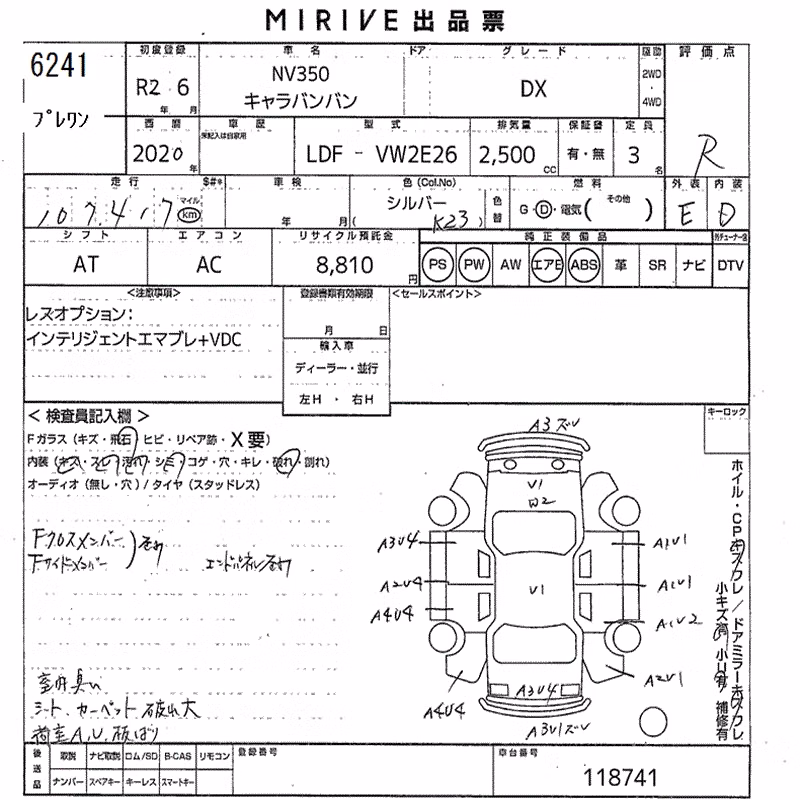 MIRIVE 出品票
6241
プレワン
初度登録
車名
ドア
グレード
駆動
評価点
R2 6
年 月
NV350
キャラバンバン
DX
2WD
・
4WD
R
西暦
車歴
型式
排気量
保証書
定員
2020年
未記入は自家用
LDF - VW2E26
2,500cc
有・無
3名
走行
$#*
車検
色(Col.No)
色替
燃料
外装
内装
107417
マイル
km
年 月
シルバー
( K23 )
G・D・電気( その他 )
E
D
シフト
エアコン
リサイクル預託金
純正装備品
AT
AC
8,810円
PS PW AW エアB ABS 革 SR ナビ DTV
<注意事項>
登録書類有効期限
<セールスポイント>
レスオプション:
インテリジェントエマブレ+VDC
月 日
輸入車
ディーラー・並行
左H ・ 右H
<検査員記入欄>
キーロック
Fガラス(キズ・飛石 ヒビ・リペア跡・X要)
内装(キズ・スレ・汚れ・シミ・コゲ・穴・キレ・破れ・割れ)
オーディオ(無し・穴)/タイヤ(スタッドレス)
Fクロスメンバー
Fサイドメンバー
エンドパネル
シート、カーペット破れ大
A3ズレ
V1
V1
A3V4
A2V4
A4V4
A4V4
A1V1
A1V1
A1V2
A2V1
A3V4
A3V1ズレ
ホイル・CPキズワレ/ドアミラーキズワレ
小キズ有 小U有 補修有
後送品
取説 ナビ取説 ロム/SD B-CAS リモコン
ナンバー スペアキー キーレス スマートキー
登録番号
車台番号
118741